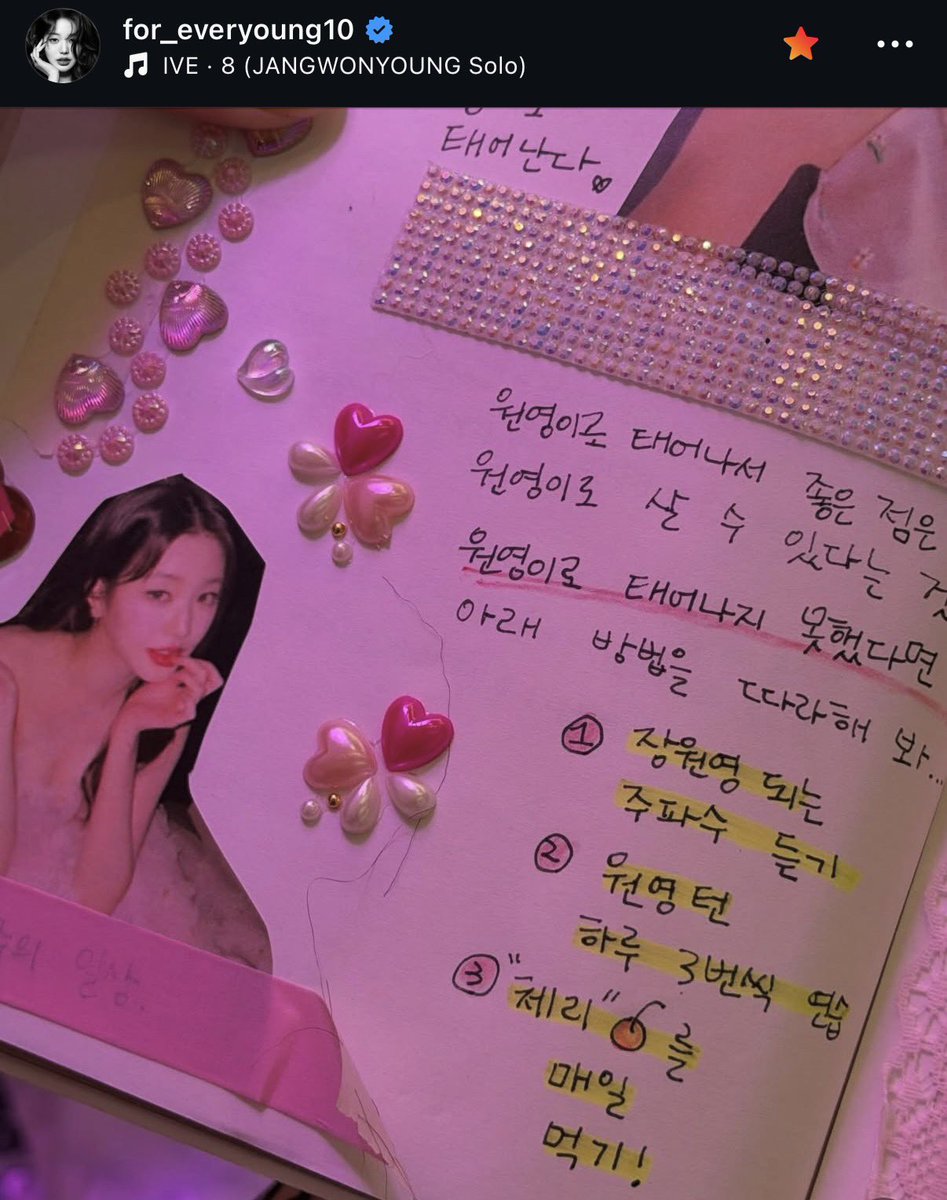 for_everyoung10
IVE · 8 (JANGWONYOUNG Solo)
태어난다
원영이로 태어나서 좋은 점은
원영이로 살 수 있다는
원영이로 태어나지 못했다면
아래 방법을 따라해 봐...
① 장원영 되는
주파수 듣기
② 원영턴
하루 3번씩 연습
③ "체리"를
매일
먹기!
일상.